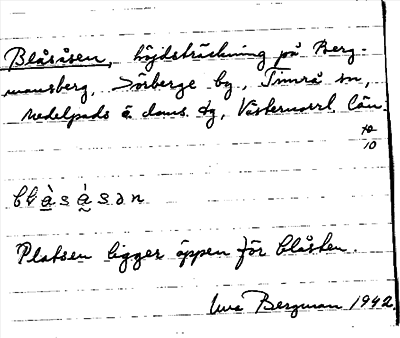 Blåsåsen, höjdsträckning på Berg-
mansberg, Sörberge by, Timrå sn,
Medelpads ö. doms. dg, Västernorrl. län.
10
10
blåsåsən
Platsen ligger öppen för blåsten.
Bergman 1942.